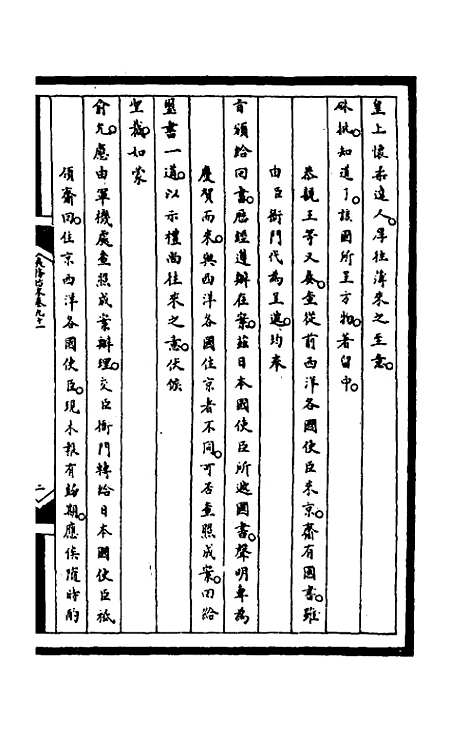 皇上懷柔遠人。厚往薄來之至意。
硃批。知道了。該國所呈方物。著留中。
恭親王等又奏。查從前西洋各國使臣來京。齎有國書。雖
由臣衙門代為呈遞。均奉
旨頒給回書。歷經遵辦在案。茲日本國使臣所遞國書。聲明專為
慶賀而來。與西洋各國住京者不同。可否查照成案。回給
璽書一道。以示禮尚往來之意。伏候
聖裁。如蒙
俞允。應由軍機處查照成案辦理。交臣衙門轉給日本國使臣祗
領齎回。住京西洋各國使臣。現未報有歸期。應俟隨時酌
夷務始末卷九十一
二